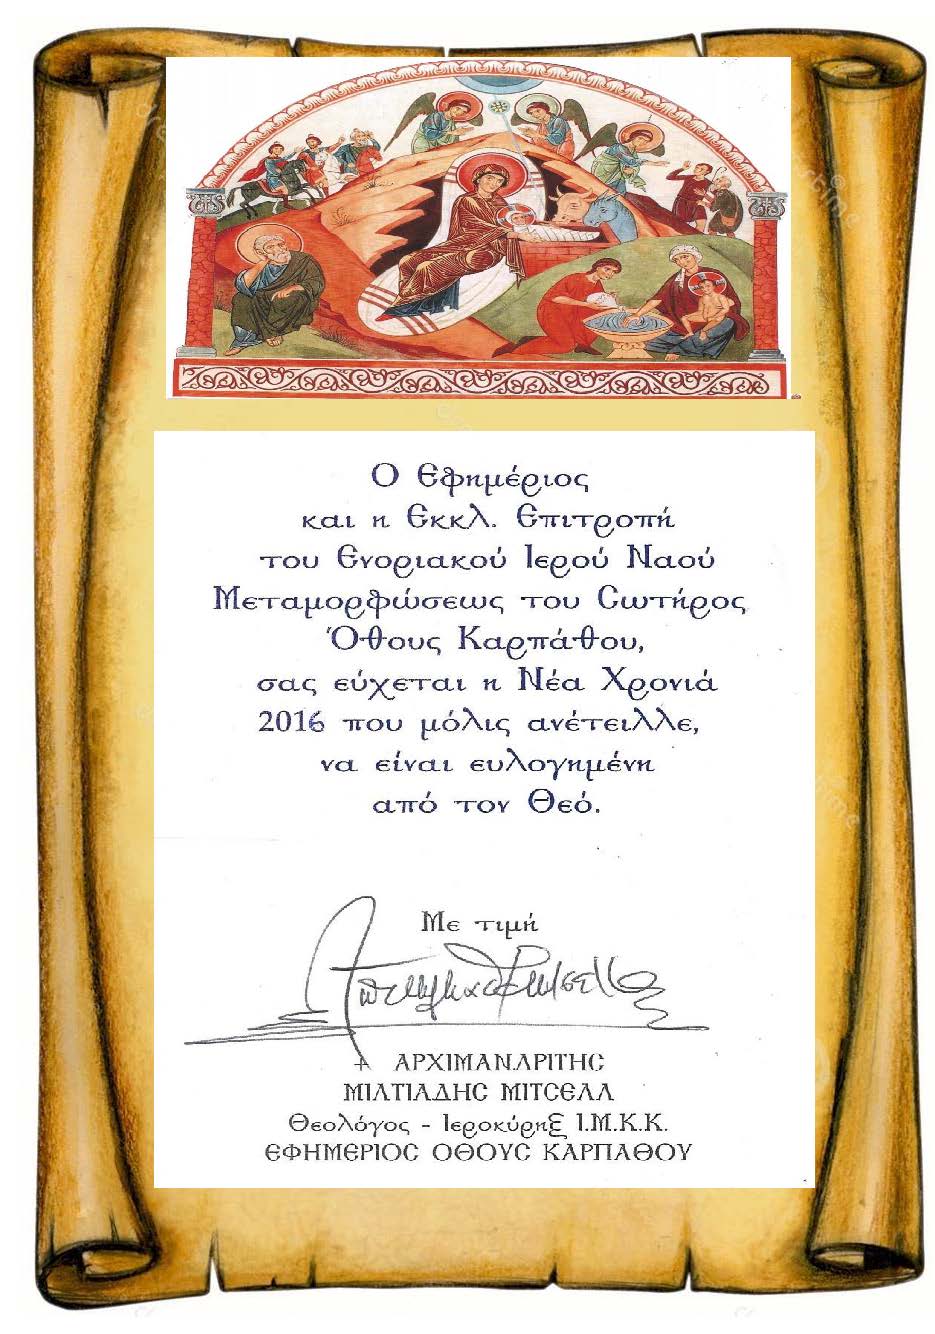 Ο Εφημέριος
και η Εκκλ. Επιτροπή
του Ενοριακού Ιερού Ναού
Μεταμορφώσεως του Σωτήρος
Όθους Καρπάθου,
σας εύχεται η Νέα Χρονιά
2016 που μόλις ανέτειλλε,
να είναι ευλογημένη
από τον Θεό.
Με τιμή
+ ΑΡΧΙΜΑΝΔΡΙΤΗΣ
ΜΙΛΤΙΑΔΗΣ ΜΙΤΣΕΛΛ
Θεολόγος - Ιεροκύρηξ Ι.Μ.Κ.Κ.
ΕΦΗΜΕΡΙΟΣ ΟΘΟΥΣ ΚΑΡΠΑΘΟΥ